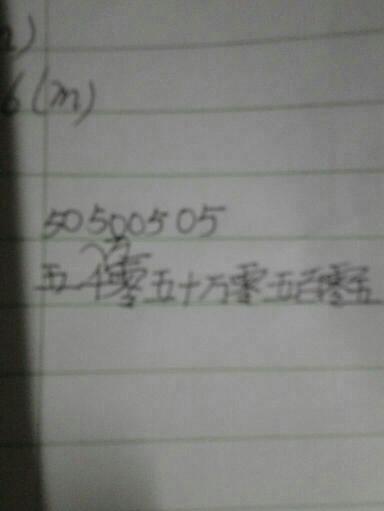 6(m)
50500505
五千零五十万零五百零五